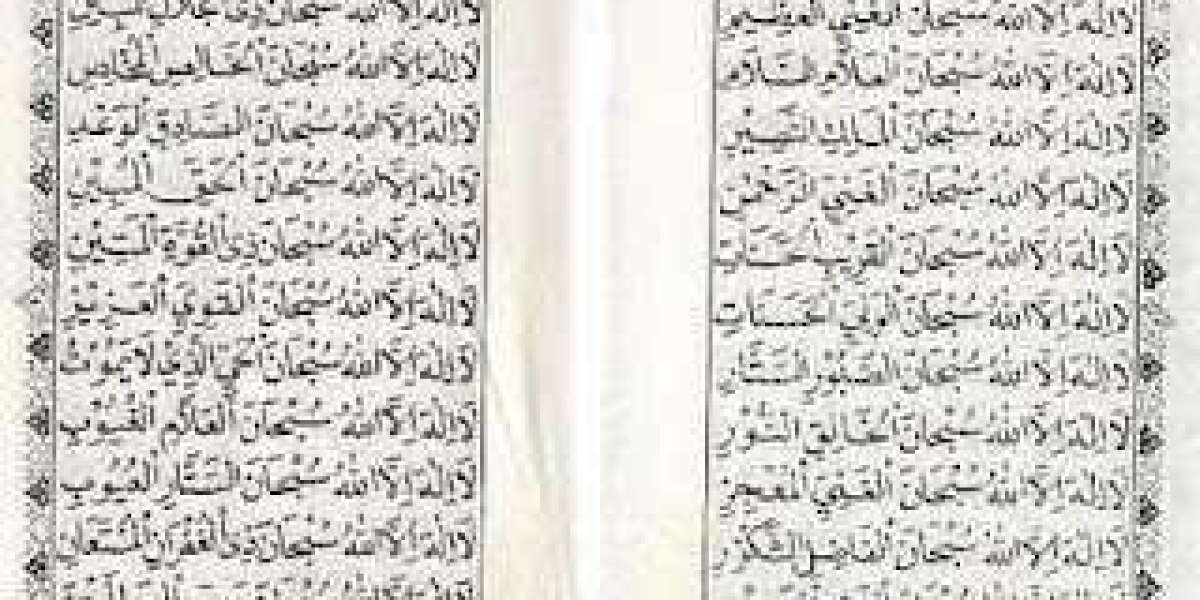 لَا إِلٰهَ إِلَّا اللهُ سُبْحَانَ الْغَنِيِّ الْعَظِيمِ
لَا إِلٰهَ إِلَّا اللهُ سُبْحَانَ الْعَلَّامِ السَّلَامِ
لَا إِلٰهَ إِلَّا اللهُ سُبْحَانَ الْمَلِكِ النَّصِيرِ
لَا إِلٰهَ إِلَّا اللهُ سُبْحَانَ الْغَنِيِّ الرَّحْمٰنِ
لَا إِلٰهَ إِلَّا اللهُ سُبْحَانَ الْقَرِيبِ الْحَسَنَاتِ
لَا إِلٰهَ إِلَّا اللهُ سُبْحَانَ الْوَلِيِّ الْحَسَنَاتِ
لَا إِلٰهَ إِلَّا اللهُ سُبْحَانَ الصَّبُورِ السَّتَّارِ
لَا إِلٰهَ إِلَّا اللهُ سُبْحَانَ الْخَالِقِ النُّورِ
لَا إِلٰهَ إِلَّا اللهُ سُبْحَانَ الْغَنِيِّ الْمُعْجِزِ
لَا إِلٰهَ إِلَّا اللهُ سُبْحَانَ الْفَاضِلِ الشَّكُورِ
لَا إِلٰهَ إِلَّا اللهُ سُبْحَانَ ذِي جَلَالِ الْمُبِينِ
لَا إِلٰهَ إِلَّا اللهُ سُبْحَانَ الْخَالِصِ الْمُخْلِصِ
لَا إِلٰهَ إِلَّا اللهُ سُبْحَانَ الصَّادِقِ الْوَعْدِ
لَا إِلٰهَ إِلَّا اللهُ سُبْحَانَ الْحَقِّ الْمُبِينِ
لَا إِلٰهَ إِلَّا اللهُ سُبْحَانَ ذِي الْقُوَّةِ الْمَتِينِ
لَا إِلٰهَ إِلَّا اللهُ سُبْحَانَ الْقَوِيِّ الْعَزِيزِ
لَا إِلٰهَ إِلَّا اللهُ سُبْحَانَ الْحَيِّ الَّذِي لَا يَمُوتُ
لَا إِلٰهَ إِلَّا اللهُ سُبْحَانَ الْعَلَّامِ الْغُيُوبِ
لَا إِلٰهَ إِلَّا اللهُ سُبْحَانَ السَّتَّارِ الْعُيُوبِ
لَا إِلٰهَ إِلَّا اللهُ سُبْحَانَ ذِي الْغُفْرَنِ الْمُسْتَعَانِ